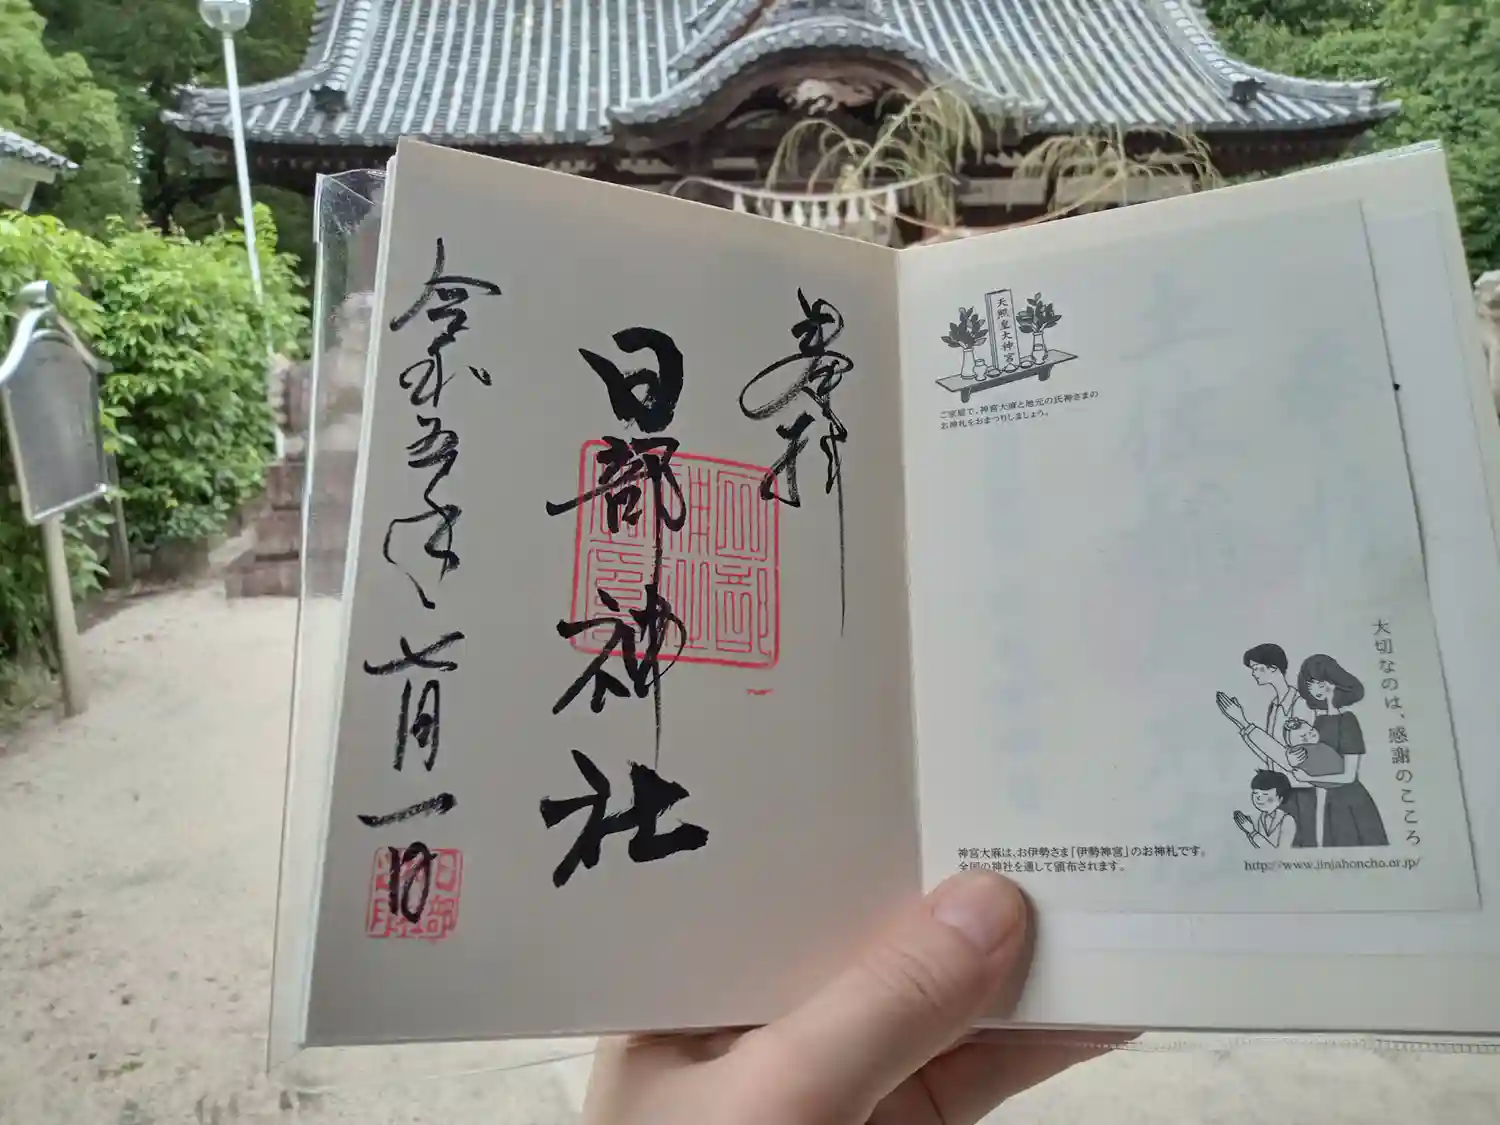 奉拝
日部神社
令和五年七月一日
天照皇大神宮
ご家庭で、神宮大麻と地元の氏神さまの
お神札をおまつりしましょう。
大切なのは、感謝のこころ
神宮大麻は、お伊勢さま「伊勢神宮」のお神札です。
全国の神社を通して頒布されます。
http://www.jinjahoncho.or.jp/